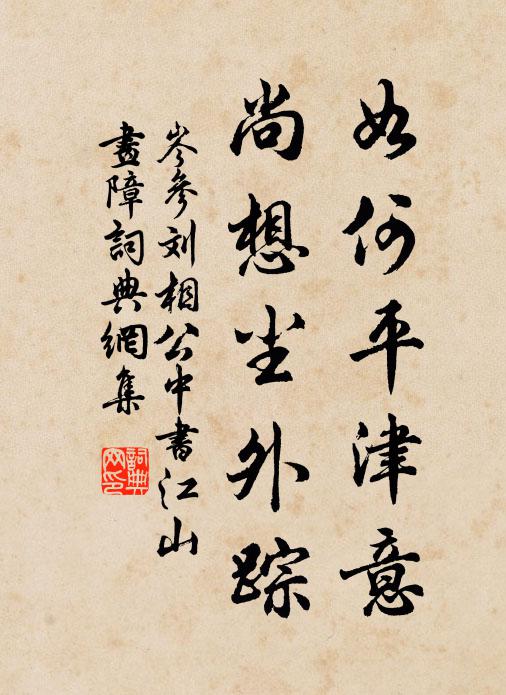 如何平津意
尚想尘外踪
岑參刘相公中書江山
畫障詞典網集
詞典
网印